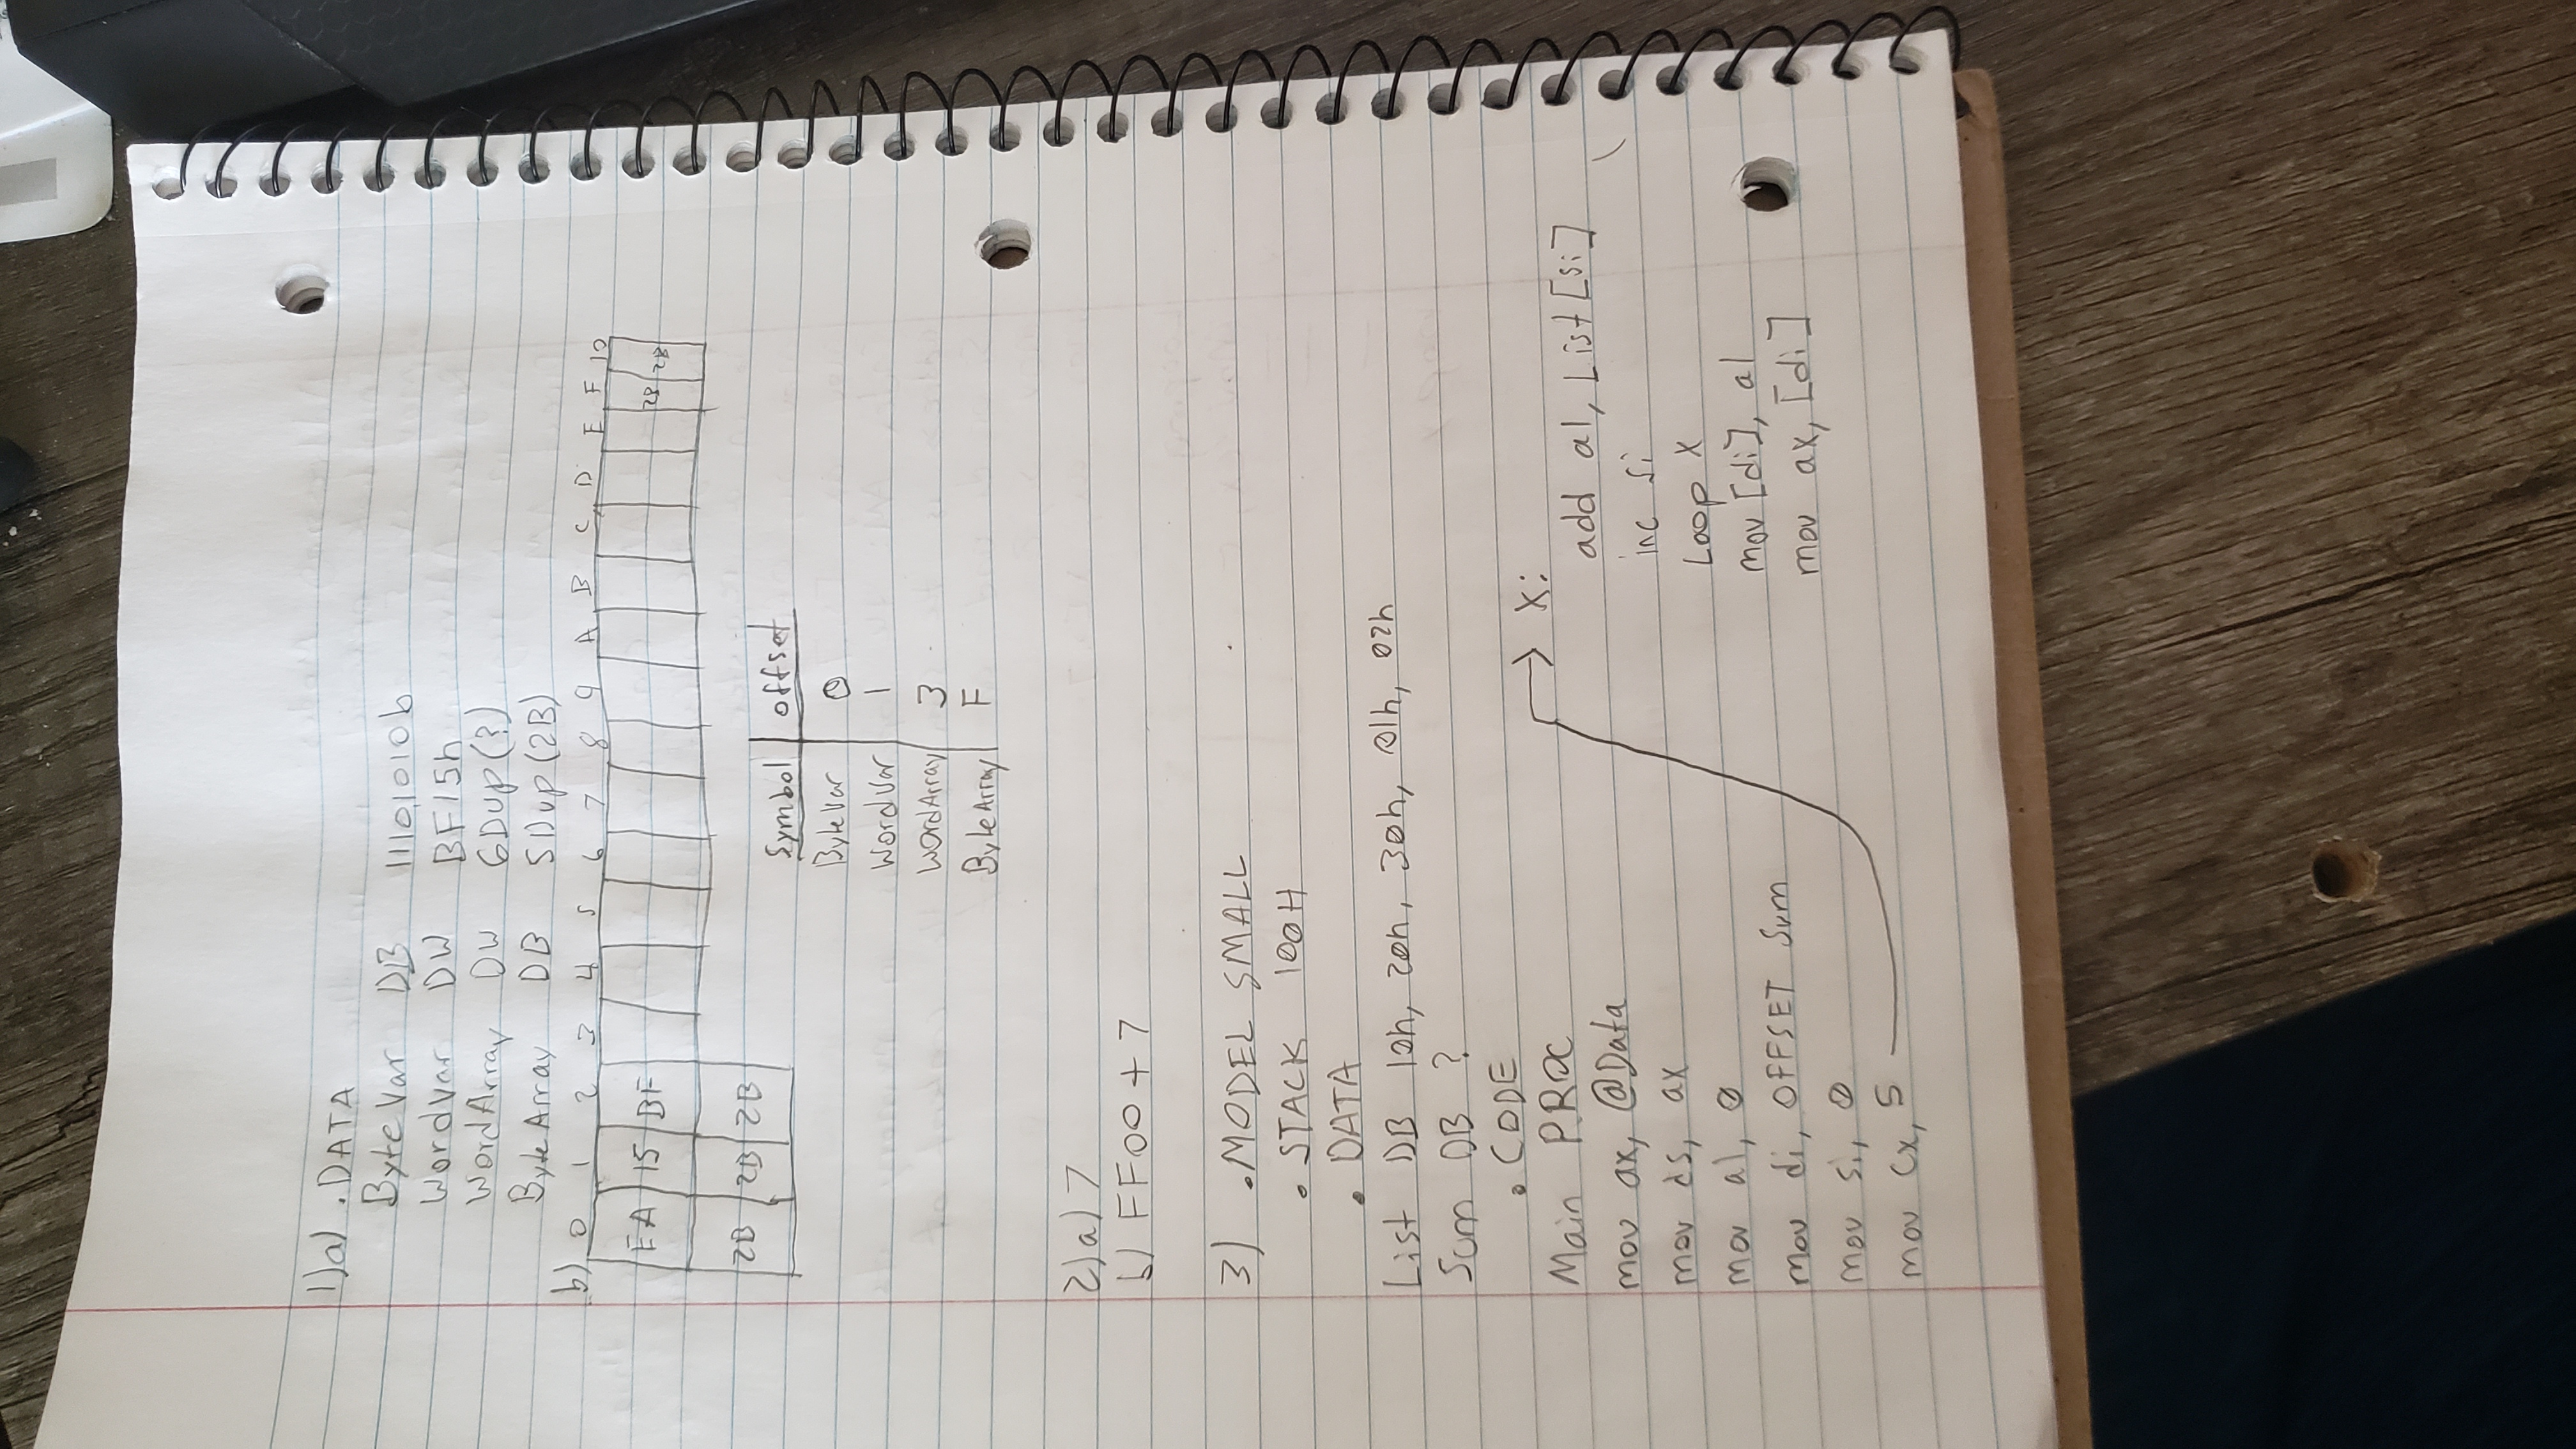 1)a) .DATA
ByteVar DB 11101010b
WordVar DW BF15h
WordArray DW 6Dup(?)
ByteArray DB 5Dup(2B)
b) 0 1 2 3 4 5 6 7 8 9 A B C D E F 10
EA 15 BF 2B 2B
2B 2B 2B
Symbol offset
ByteVar 0
WordVar 1
WordArray 3
ByteArray F
2)a) 7
b) FF00 + 7
3) .MODEL SMALL
.STACK 100H
.DATA
List DB 10h, 20h, 30h, 01h, 02h
Sum DB ?
.CODE
Main PROC
mov ax, @Data
mov ds, ax
mov al, 0
mov di, OFFSET Sum
mov si, 0
mov cx, 5
X:
add al, List[si]
inc si
Loop X
mov [di], al
mov ax, [di]